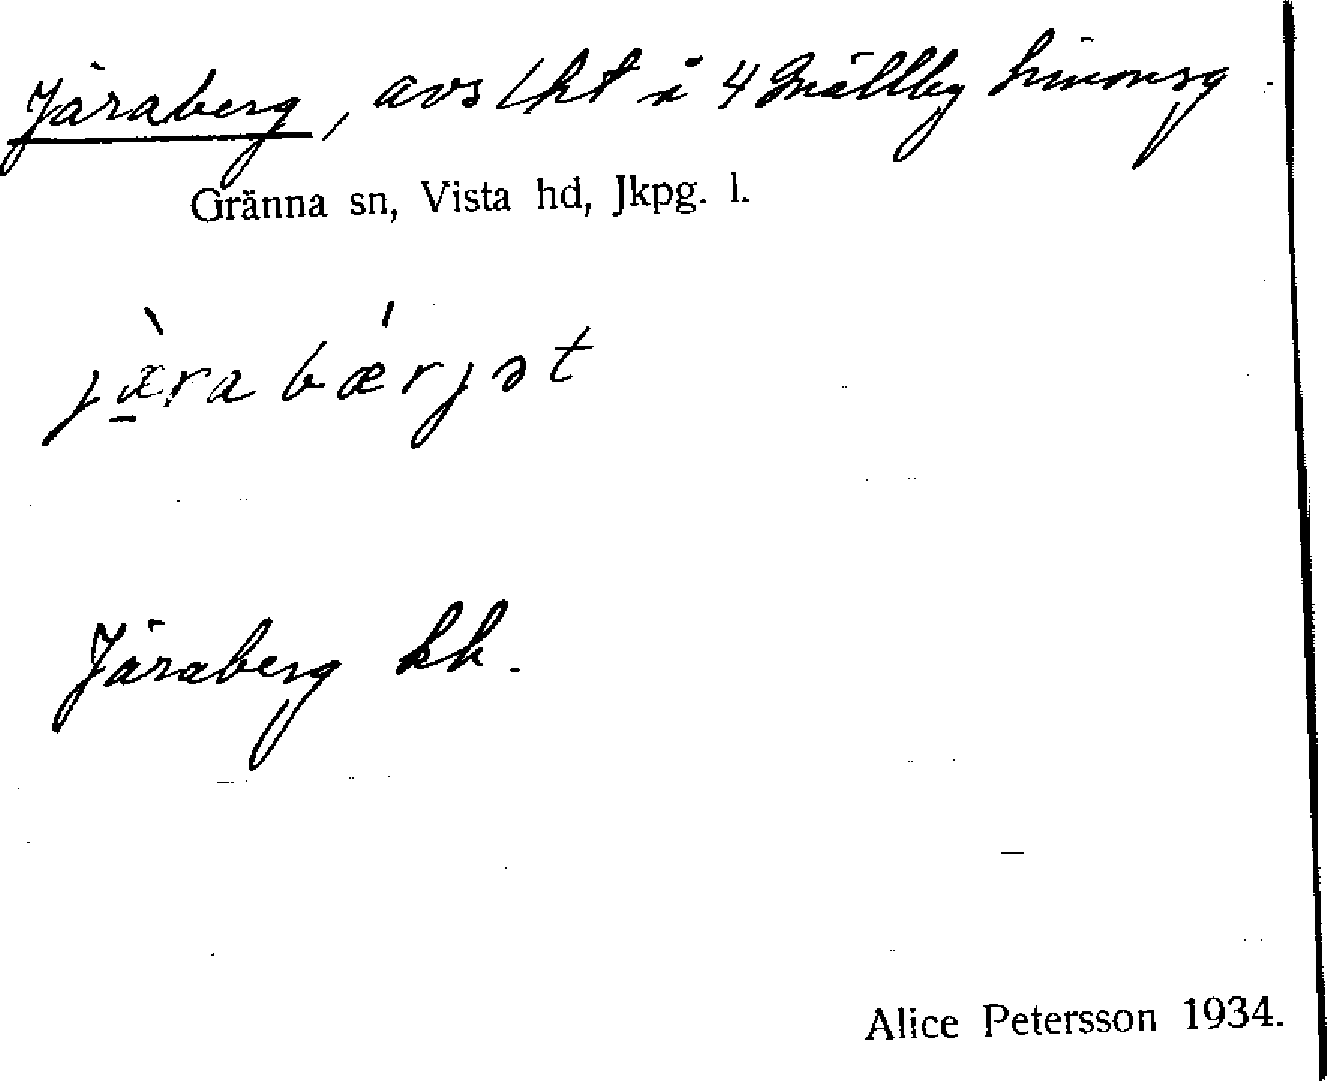 Järaberg, avs lht i 4 Mällby
Gränna sn, Vista hd, Jkpg. l.
jæ̀ra bǽrjət
Järaberg kk.
Alice Petersson 1934.